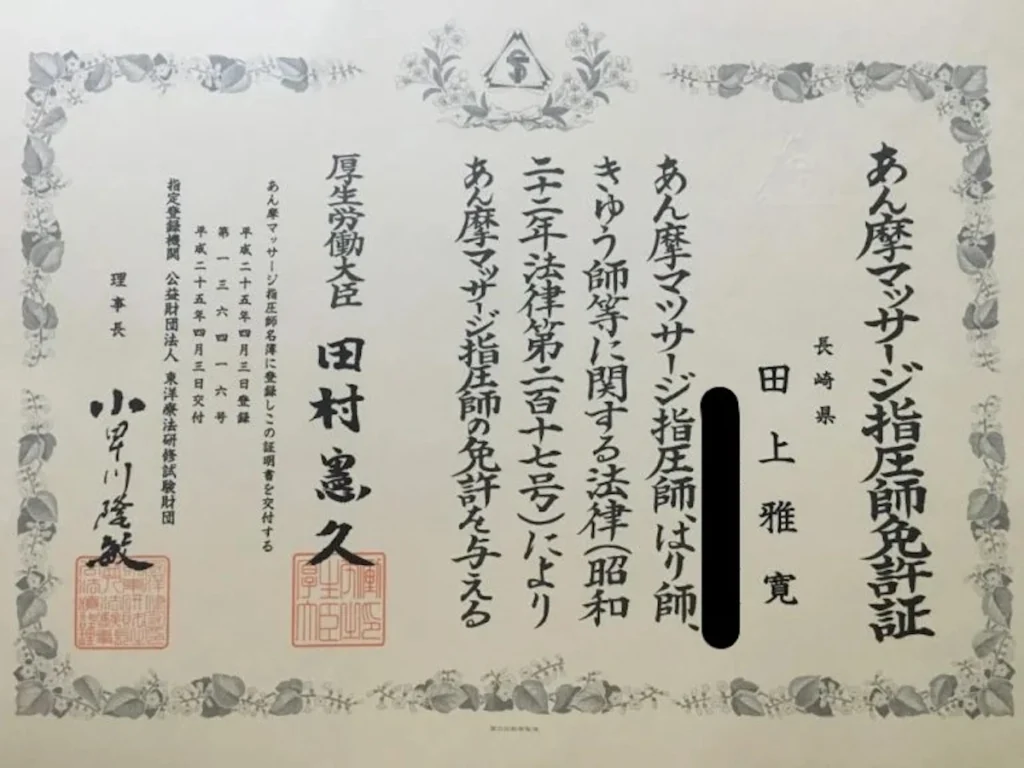 あん摩マッサージ指圧師免許証
長崎県
田上雅寛
あん摩マツサージ指圧師、はり師、
きゆう師等に関する法律(昭和
二十二年法律第二百十七号)により
あん摩マッサージ指圧師の免許を与える
厚生労働大臣 田村憲久
あん摩マッサージ指圧師名簿に登録しこの証明書を交付する
平成二十五年四月三日登録
第一三六四一六号
平成二十五年四月三日交付
指定登録機関 公益財団法人 東洋療法研修試験財団
理事長 小早川隆敏